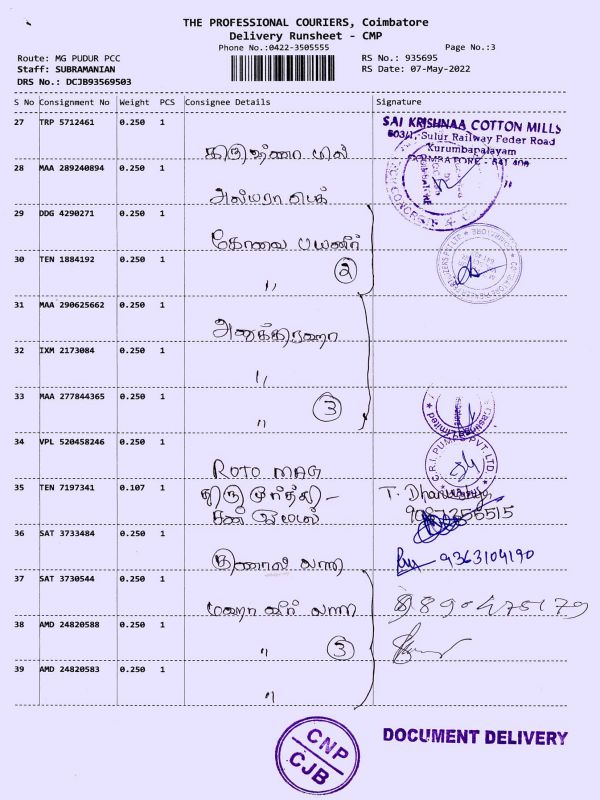 THE PROFESSIONAL COURIERS, Coimbatore
Delivery Runsheet - CMP
Phone No.:0422-3505555
Page No.:3
Route: MG PUDUR PCC
RS No.: 935695
Staff: SUBRAMANIAN
RS Date: 07-May-2022
DRS No.: DCJB93569503
S No Consignment No Weight PCS Consignee Details Signature
27 TRP 5712461 0.250 1
SAI KRISHNAA COTTON MILLS
603/1, Sulur Railway Feder Road
Kurumbapalayam
COIMBATORE - 641 401
கிருஷ்ணா மில்
28 MAA 289240894 0.250 1
29 DDG 4290271 0.250 1
கோவை பயனீர்
30 TEN 1884192 0.250 1
2
"
31 MAA 290625662 0.250 1
32 IXM 2173084 0.250 1
"
33 MAA 277844365 0.250 1
3
"
34 VPL 520458246 0.250 1
C.R.I. PUMPS PVT. LTD
ROTO MAG
35 TEN 7197341 0.107 1
திரு மூர்த்தி -
36 SAT 3733484 0.250 1
9363104190
குணால்
37 SAT 3730544 0.250 1
மஹா வீர்
38 AMD 24820588 0.250 1
" 3
39 AMD 24820583 0.250 1
"
CNP
CJB
DOCUMENT DELIVERY